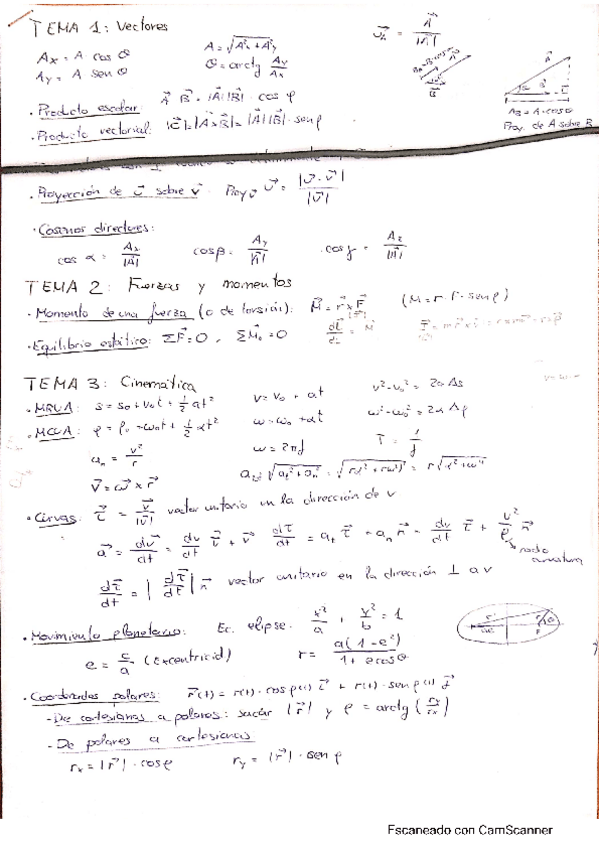 TEMA 1: Vectores
Ax = A cos θ
A = √(A²x + A²y)
Ay = A sen θ
θ = arctg Ay/Ax
· Producto escalar: A⃗ B⃗ = |A⃗||B⃗| · cos φ
· Producto vectorial: |C⃗| = |A⃗ × B⃗| = |A⃗||B⃗| · sen φ
AB = A · cos θ
Proy. de A sobre B
· Proyección de u⃗ sobre v⃗.
· Cosenos directores:
cos α = Ax/|A⃗|
cos β = Ay/|A⃗|
cos γ = Az/|A⃗|
TEMA 2: Fuerzas y momentos
· Momento de una fuerza (o de torsión): M⃗ = r⃗ × F⃗ (M = r · F · sen φ)
· Equilibrio estático: ΣF⃗ = 0, ΣM⃗o = 0
TEMA 3: Cinemática
· MRUA: s = so + vot + ½ at²
v = vo + at
v² - vo² = 2a Δs
· MCUA: φ = φo + ωot + ½ αt²
ω = ωo + αt
ω² - ωo² = 2α Δφ
an = v²/r
ω = 2πf
T = 1/f
v⃗ = ω⃗ × r⃗
· Curvas: τ⃗ = v⃗/|v⃗| vector unitario en la dirección de v
a⃗ = dv⃗/dt = dv/dt τ⃗ + v dτ⃗/dt = at τ⃗ + an n⃗ = dv/dt τ⃗ + v²/ρ n⃗
radio curvatura
dτ⃗/dt = |dτ⃗/dt| n⃗ vector unitario en la dirección ⊥ a v
· Movimiento planetario: Ec. elipse. x²/a + y²/b = 1
e = c/a (excentricid)
r = a(1-e²)/1+e cos θ
· Coordenadas polares: r⃗(t) = r(t) · cos φ(t) i⃗ + r(t) · sen φ(t) j⃗
- De cartesianas a polares: sacar |r⃗| y φ = arctg (ry/rx)
- De polares a cartesianas
rx = |r⃗| · cos φ
ry = |r⃗| · sen φ
Escaneado con CamScanner